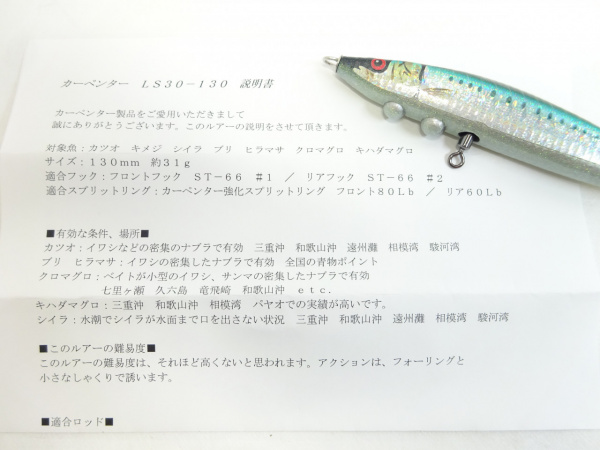 カーペンター　ＬＳ３０－１３０　説明書
カーペンター製品をご愛用いただきまして
誠にありがとうございます。このルアーの説明をさせて頂きます。
対象魚：カツオ　キメジ　シイラ　ブリ　ヒラマサ　クロマグロ　キハダマグロ
サイズ：１３０ｍｍ　約３１ｇ
適合フック：フロントフック　ＳＴ－６６　＃１　／　リアフック　ＳＴ－６６　＃２
適合スプリットリング：カーペンター強化スプリットリング　フロント８０Ｌｂ　／　リア６０Ｌｂ
■有効な条件、場所■
カツオ：イワシなどの密集のナブラで有効　三重沖　和歌山沖　遠州灘　相模湾　駿河湾
ブリ　ヒラマサ：イワシの密集したナブラで有効　全国の青物ポイント
クロマグロ：ベイトが小型のイワシ、サンマの密集したナブラで有効
七里ヶ瀬　久六島　竜飛崎　和歌山沖　ｅｔｃ．
キハダマグロ：三重沖　和歌山沖　相模湾　パヤオでの実績が高いです。
シイラ：水潮でシイラが水面まで口を出さない状況　三重沖　和歌山沖　遠州灘　相模湾　駿河湾
■このルアーの難易度■
このルアーの難易度は、それほど高くないと思われます。アクションは、フォーリングと
小さなしゃくりで誘います。
■適合ロッド■